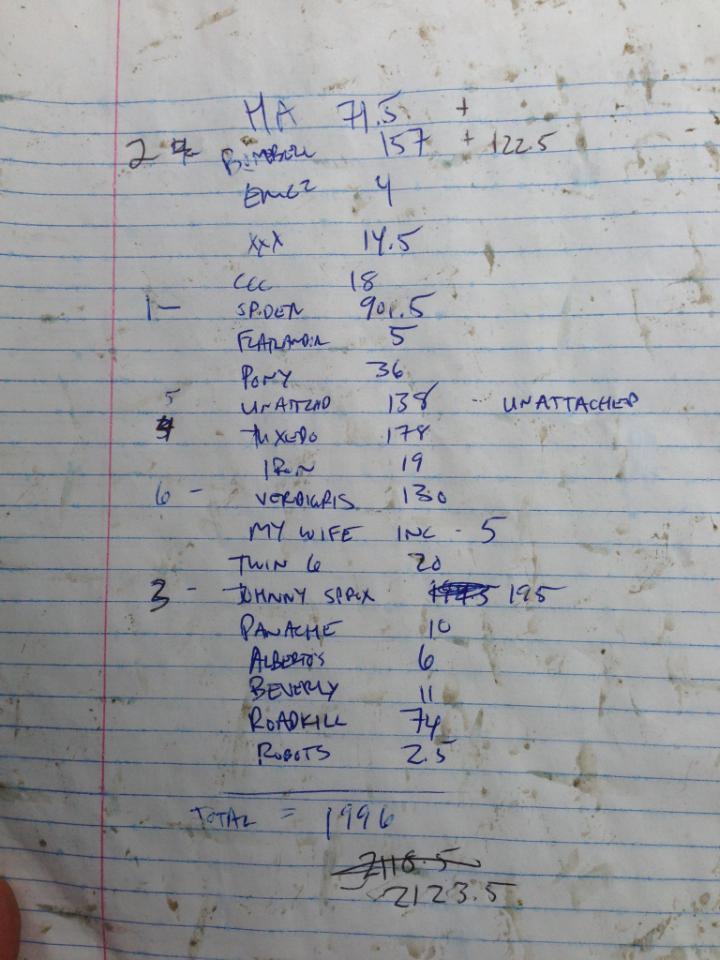 HA 71.5 +
2 157 + 122.5
EMC2 4
XXX 14.5
CCC 18
1— SPIDER 901.5
FLATLANDIA 5
PONY 36
5 UNATTCHD 138 - UNATTACHED
4 TUXEDO 178
IRON 19
6 - VERDIGRIS 130
MY WIFE INC - 5
TWIN 6 20
3 - JOHNNY SPROX 195
PANACHE 10
ALBERTO'S 6
BEVERLY 11
ROADKILL 74
ROBOTS 2.5
TOTAL = 1996
2118.5
2123.5